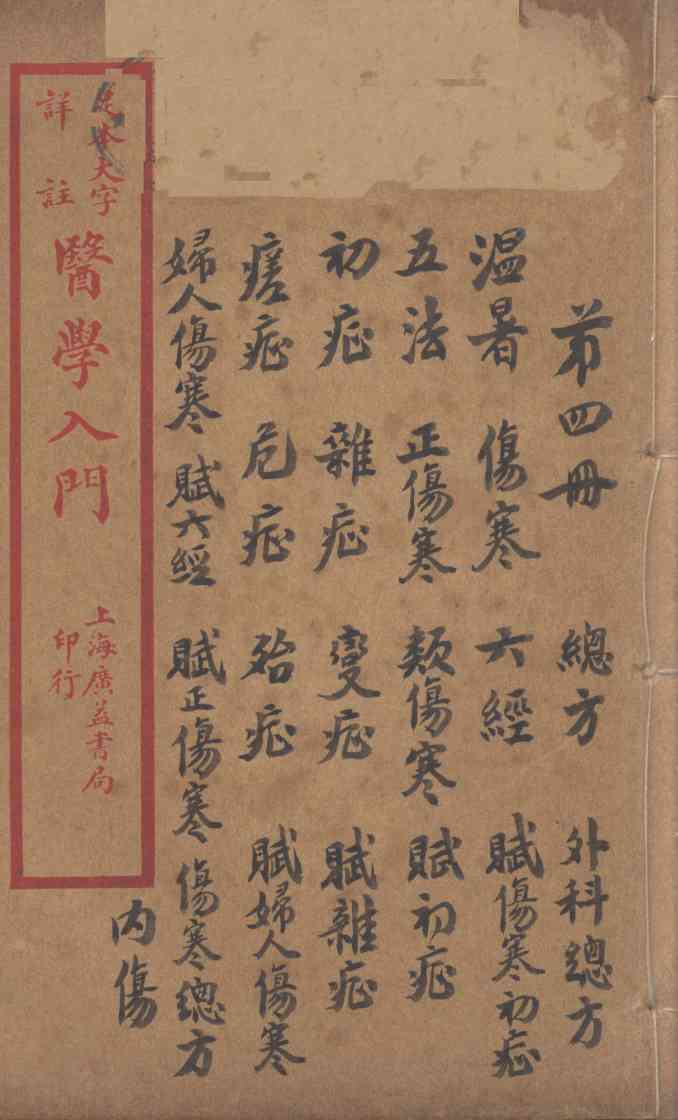 第四冊 總方 外科總方
温暑 傷寒 六經 賦傷寒初症
五法 正傷寒 類傷寒 賦初症
初症 雜症 變症 賦雜症
瘥症 危症 殆症 賦婦人傷寒
婦人傷寒 賦六經 賦正傷寒 傷寒總方
内傷
足本大字
詳註
醫學入門
上海廣益書局
印行